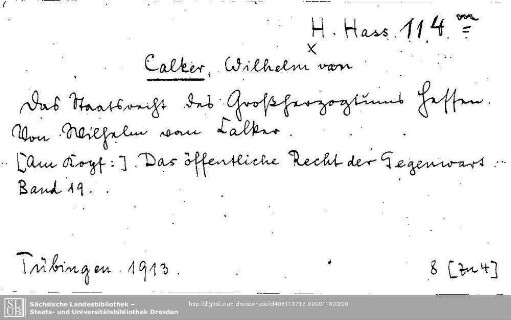 H. Hass. 114 m
x
Calker, Wilhelm van
Das Staatsrecht des Großherzogtums Hessen.
Von Wilhelm van Calker.
[Am Kopf:] Das öffentliche Recht der Gegenwart.
Band 19.
Tübingen 1913.
8 [zu 4]
SLUB
Sächsische Landesbibliothek –
Staats- und Universitätsbibliothek Dresden